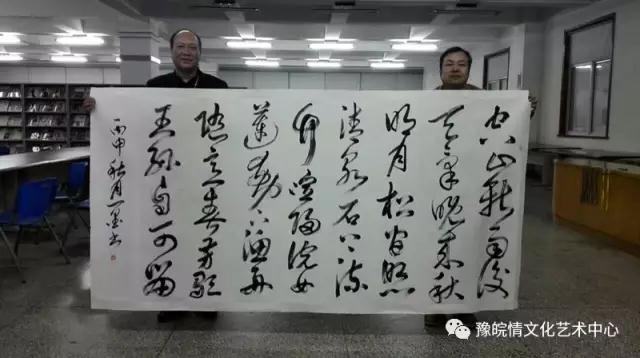 空山新雨後
天氣晚来秋
明月松间照
清泉石上流
竹喧歸浣女
蓮動下漁舟
随意春芳歇
王孫自可留
丙申秋月一墨书
豫皖情文化艺术中心